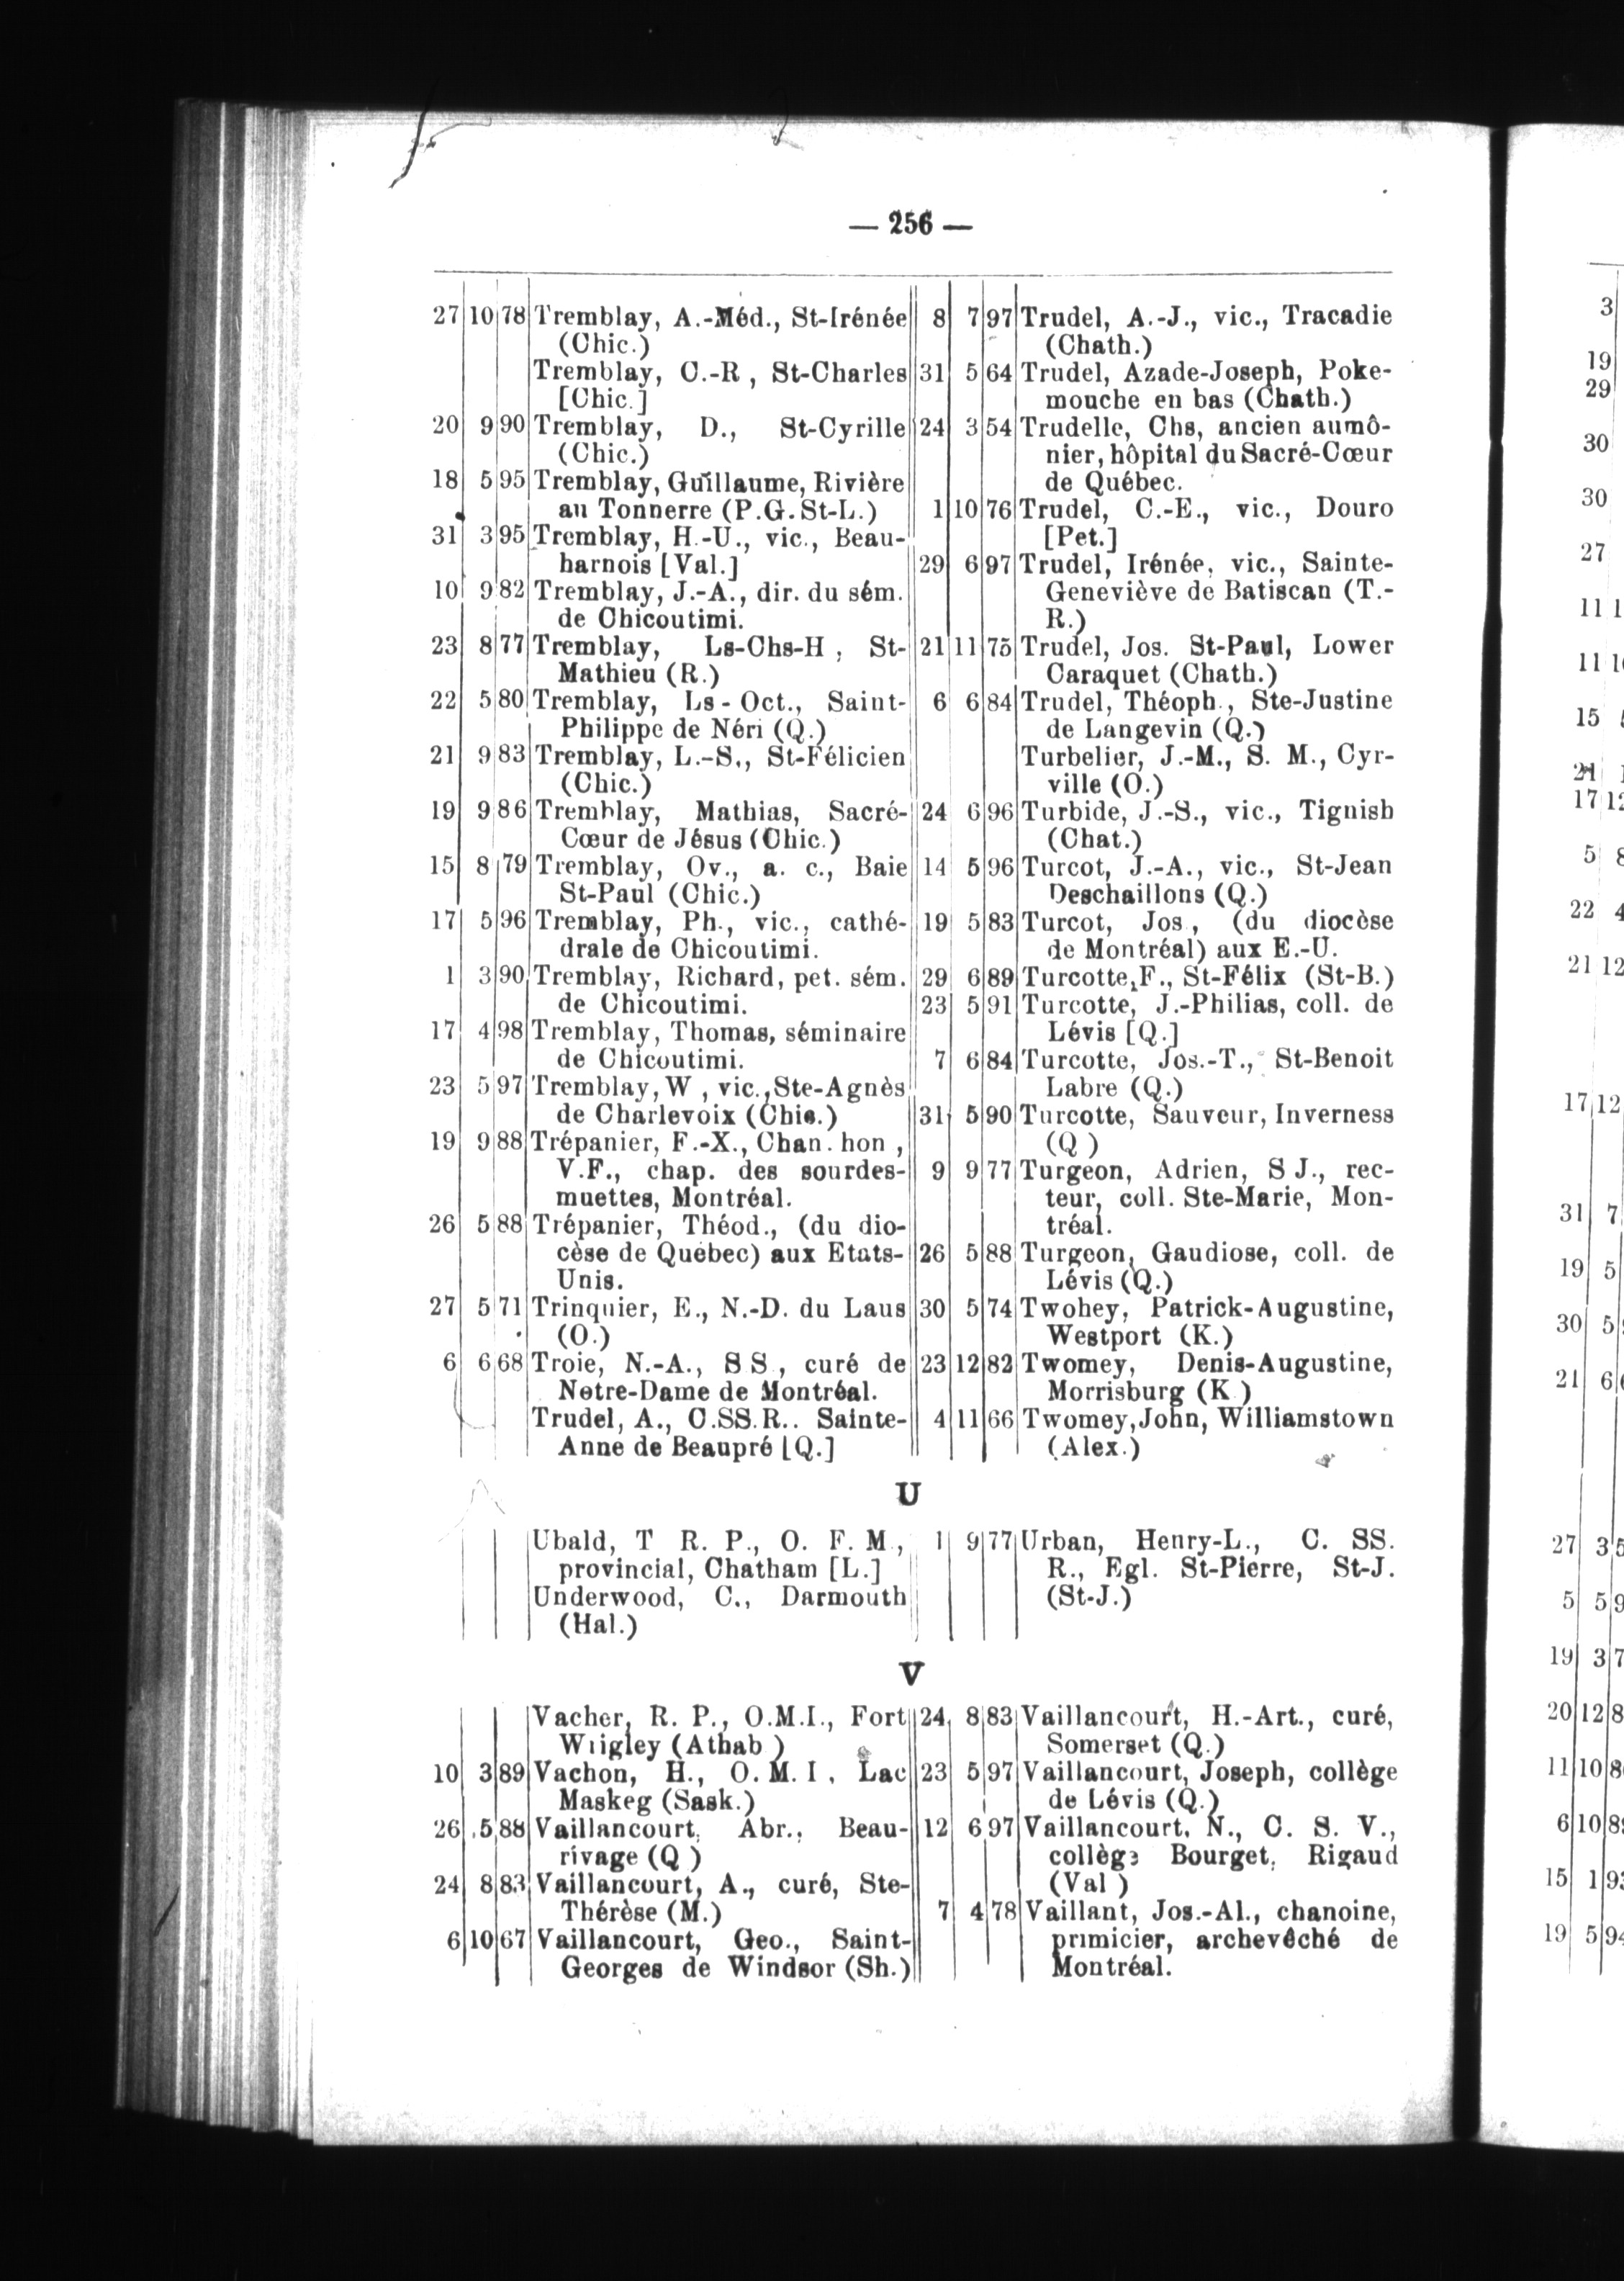 — 256 —
27 10 78 Tremblay, A.-Méd., St-Irénée
(Chic.)
Tremblay, C.-R , St-Charles
[Chic.]
20 9 90 Tremblay, D., St-Cyrille
(Chic.)
18 5 95 Tremblay, Guillaume, Rivière
au Tonnerre (P.G.St-L.)
31 3 95 Tremblay, H.-U., vic., Beau-
harnois [Val.]
10 9 82 Tremblay, J.-A., dir. du sém.
de Chicoutimi.
23 8 77 Tremblay, Ls-Chs-H , St-
Mathieu (R.)
22 5 80 Tremblay, Ls-Oct., Saint-
Philippe de Néri (Q.)
21 9 83 Tremblay, L.-S., St-Félicien
(Chic.)
19 9 86 Tremblay, Mathias, Sacré-
Cœur de Jésus (Chic.)
15 8 79 Tremblay, Ov., a. c., Baie
St-Paul (Chic.)
17 5 96 Tremblay, Ph., vic., cathé-
drale de Chicoutimi.
1 3 90 Tremblay, Richard, pet. sém.
de Chicoutimi.
17 4 98 Tremblay, Thomas, séminaire
de Chicoutimi.
23 5 97 Tremblay, W , vic., Ste-Agnès
de Charlevoix (Chic.)
19 9 88 Trépanier, F.-X., Chan. hon ,
V.F., chap. des sourdes-
muettes, Montréal.
26 5 88 Trépanier, Théod., (du dio-
cèse de Québec) aux Etats-
Unis.
27 5 71 Trinquier, E., N.-D. du Laus
(O.)
6 6 68 Troie, N.-A., S S , curé de
Notre-Dame de Montréal.
Trudel, A., C.SS.R.. Sainte-
Anne de Beaupré [Q.]
8 7 97 Trudel, A.-J., vic., Tracadie
(Chath.)
31 5 64 Trudel, Azade-Joseph, Poke-
mouche en bas (Chath.)
24 3 54 Trudelle, Chs, ancien aumô-
nier, hôpital du Sacré-Cœur
de Québec.
1 10 76 Trudel, C.-E., vic., Douro
[Pet.]
29 6 97 Trudel, Irénée, vic., Sainte-
Geneviève de Batiscan (T.-
R.)
21 11 75 Trudel, Jos. St-Paul, Lower
Caraquet (Chath.)
6 6 84 Trudel, Théoph., Ste-Justine
de Langevin (Q.)
Turbelier, J.-M., S. M., Cyr-
ville (O.)
24 6 96 Turbide, J.-S., vic., Tignish
(Chat.)
14 5 96 Turcot, J.-A., vic., St-Jean
Deschaillons (Q.)
19 5 83 Turcot, Jos , (du diocèse
de Montréal) aux E.-U.
29 6 89 Turcotte, F., St-Félix (St-B.)
23 5 91 Turcotte, J.-Philias, coll. de
Lévis [Q.]
7 6 84 Turcotte, Jos.-T., St-Benoit
Labre (Q.)
31 5 90 Turcotte, Sauveur, Inverness
(Q )
9 9 77 Turgeon, Adrien, S J., rec-
teur, coll. Ste-Marie, Mon-
tréal.
26 5 88 Turgeon, Gaudiose, coll. de
Lévis (Q.)
30 5 74 Twohey, Patrick-Augustine,
Westport (K.)
23 12 82 Twomey, Denis-Augustine,
Morrisburg (K )
4 11 66 Twomey, John, Williamstown
(Alex.)
U
Ubald, T R. P., O. F. M.,
provincial, Chatham [L.]
Underwood, C., Darmouth
(Hal.)
1 9 77 Urban, Henry-L., C. SS.
R., Egl. St-Pierre, St-J.
(St-J.)
V
Vacher, R. P., O.M.I., Fort
Wrigley (Athab )
10 3 89 Vachon, H., O. M. I , Lac
Maskeg (Sask.)
26 5 88 Vaillancourt, Abr., Beau-
rivage (Q )
24 8 83 Vaillancourt, A., curé, Ste-
Thérèse (M.)
6 10 67 Vaillancourt, Geo., Saint-
Georges de Windsor (Sh.)
24 8 83 Vaillancourt, H.-Art., curé,
Somerset (Q.)
23 5 97 Vaillancourt, Joseph, collège
de Lévis (Q.)
12 6 97 Vaillancourt, N., C. S. V.,
collège Bourget, Rigaud
(Val )
7 4 78 Vaillant, Jos.-Al., chanoine,
primicier, archevêché de
Montréal.
3
19
29
30
30
27
11 1
11
15
21
17 12
5
22 4
21 12
17 12
31 7
19 5
30 5
21 6
27 3
5 5 9
19 3 7
20 12 8
11 10 8
6 10
15 1
19 5 94